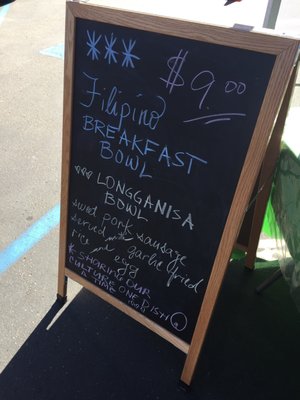 $9.00
Filipino
BREAKFAST
BOWL
LONGGANISA
BOWL
sweet pork sausage
served with garlic fried
rice and egg
* SHARING OUR
CULTURE ONE DISH
A TIME